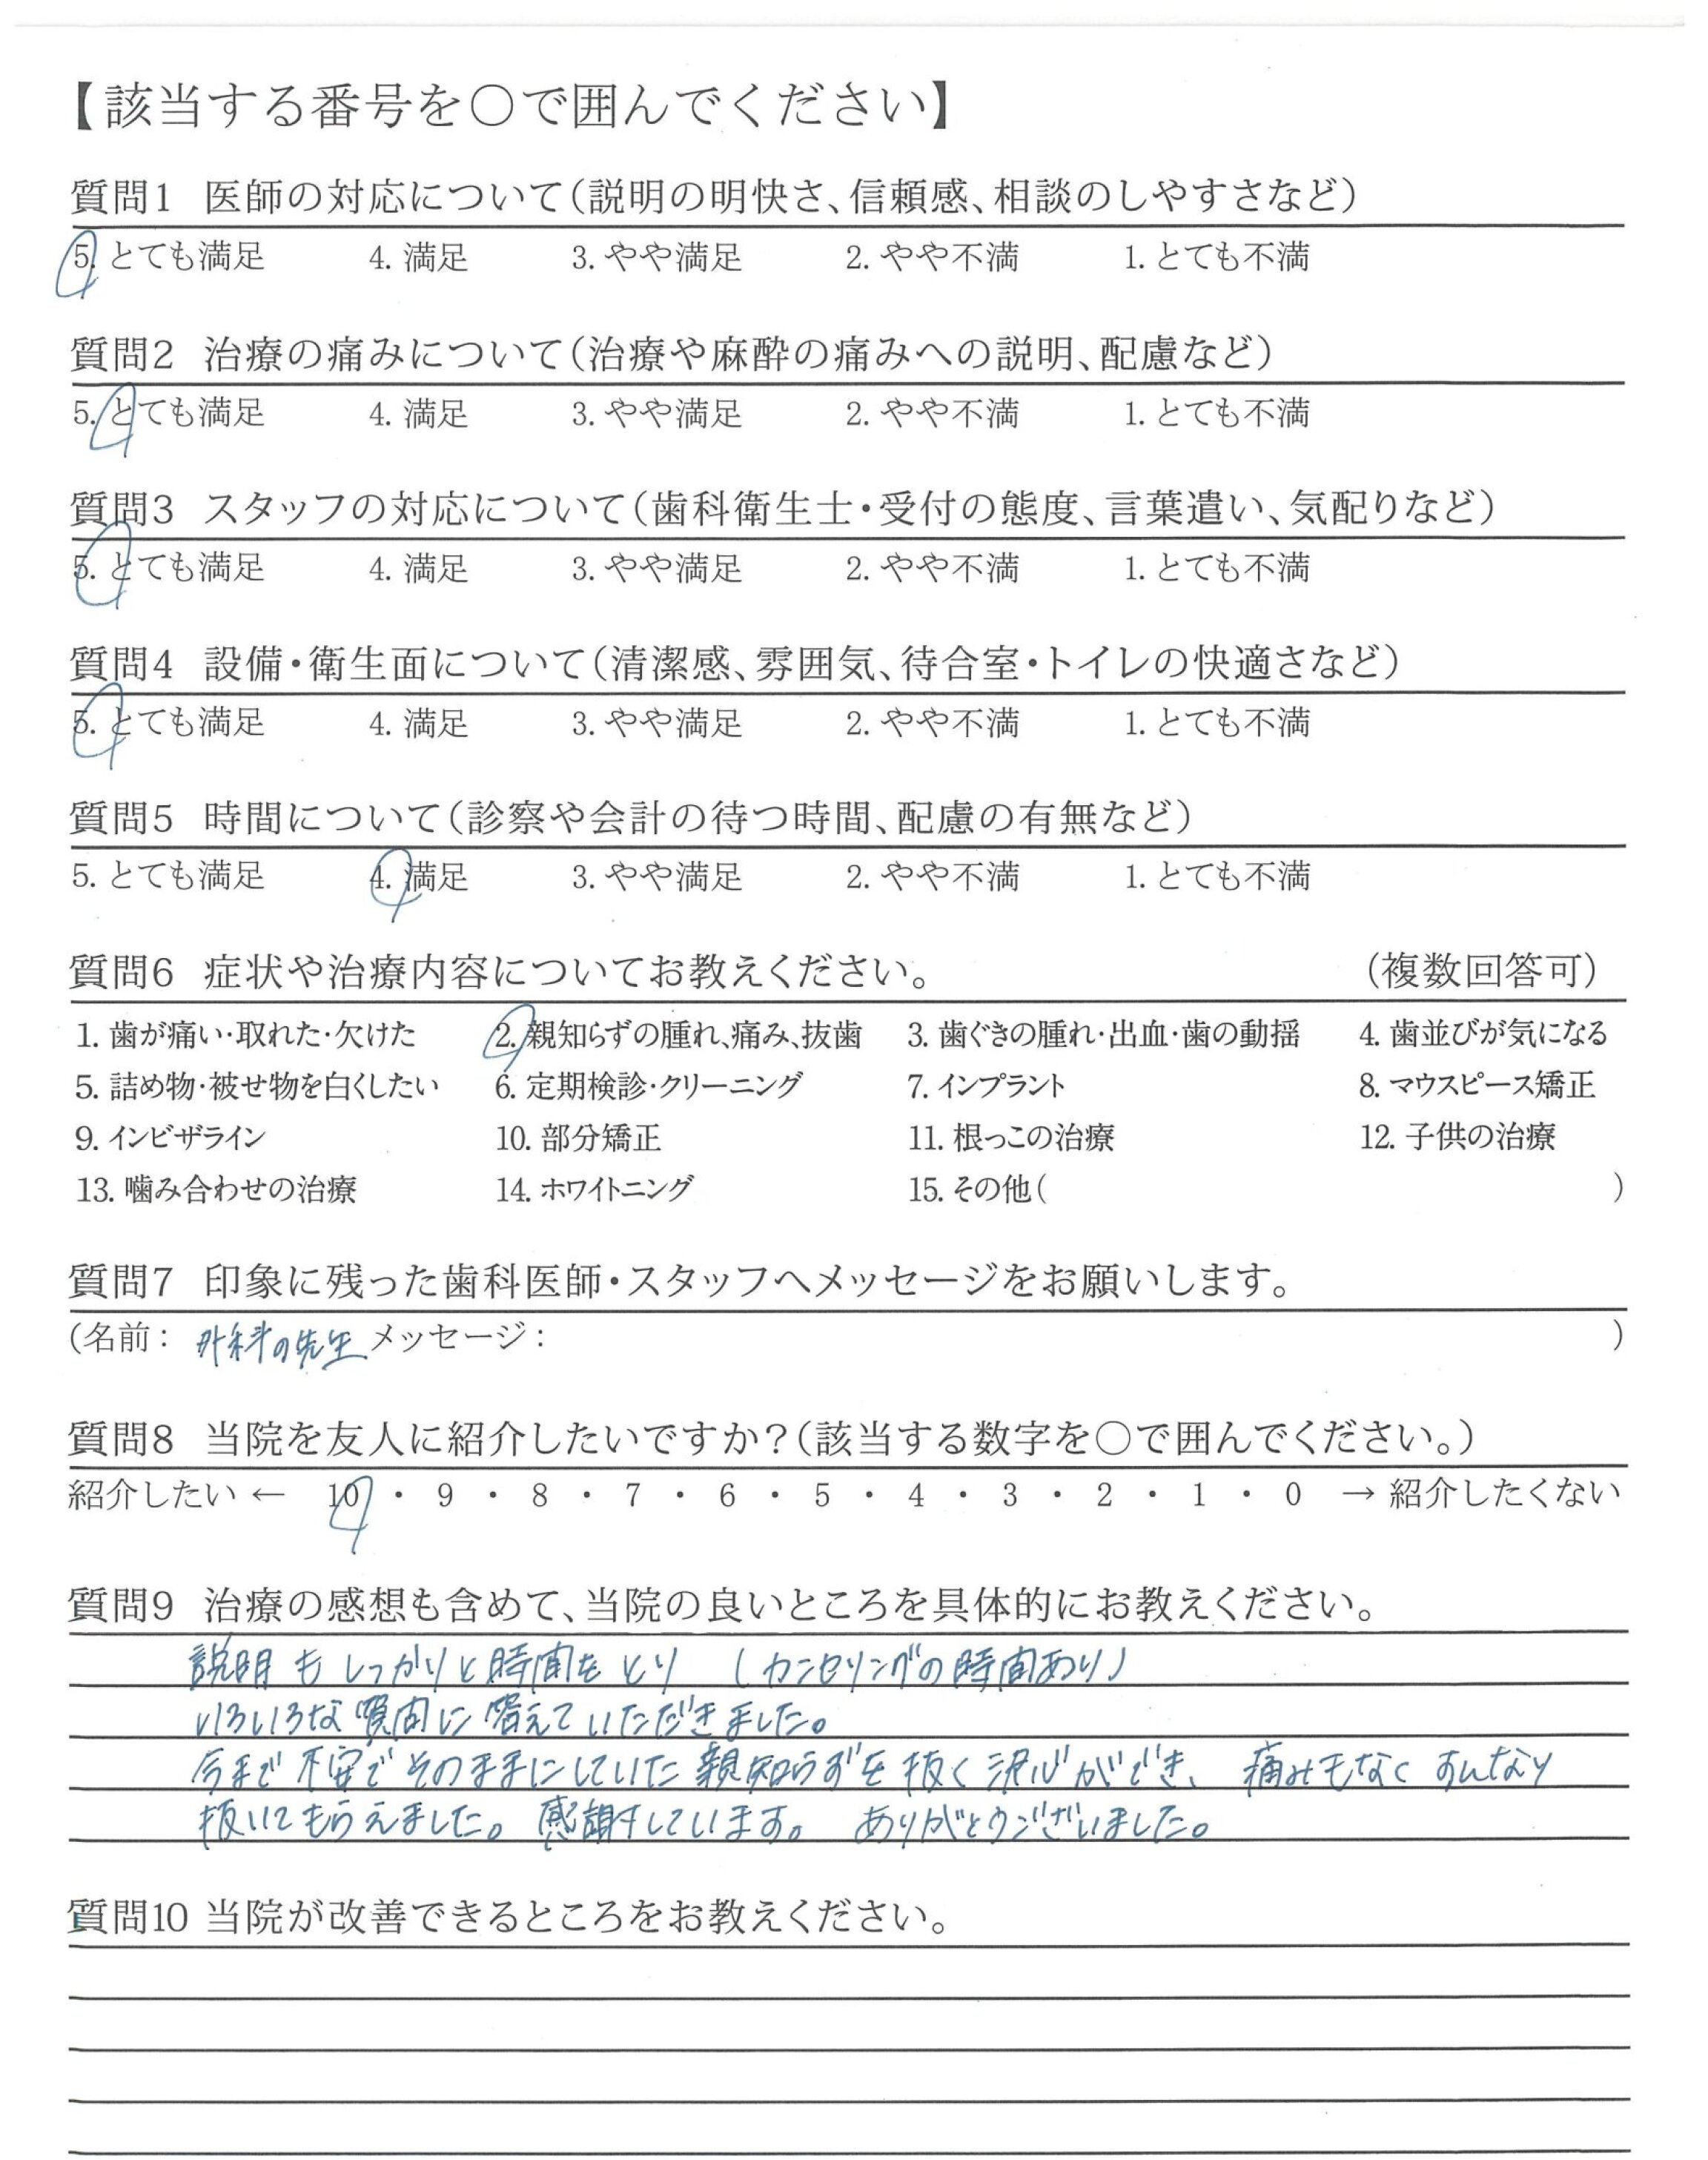 【該当する番号を○で囲んでください】
質問1 医師の対応について(説明の明快さ、信頼感、相談のしやすさなど)
5. とても満足 4. 満足 3. やや満足 2. やや不満 1. とても不満
質問2 治療の痛みについて(治療や麻酔の痛みへの説明、配慮など)
5. とても満足 4. 満足 3. やや満足 2. やや不満 1. とても不満
質問3 スタッフの対応について(歯科衛生士・受付の態度、言葉遣い、気配りなど)
5. とても満足 4. 満足 3. やや満足 2. やや不満 1. とても不満
質問4 設備・衛生面について(清潔感、雰囲気、待合室・トイレの快適さなど)
5. とても満足 4. 満足 3. やや満足 2. やや不満 1. とても不満
質問5 時間について(診察や会計の待つ時間、配慮の有無など)
5. とても満足 4. 満足 3. やや満足 2. やや不満 1. とても不満
質問6 症状や治療内容についてお教えください。 (複数回答可)
1. 歯が痛い・取れた・欠けた 2. 親知らずの腫れ、痛み、抜歯 3. 歯ぐきの腫れ・出血・歯の動揺 4. 歯並びが気になる
5. 詰め物・被せ物を白くしたい 6. 定期検診・クリーニング 7. インプラント 8. マウスピース矯正
9. インビザライン 10. 部分矯正 11. 根っこの治療 12. 子供の治療
13. 噛み合わせの治療 14. ホワイトニング 15. その他( )
質問7 印象に残った歯科医師・スタッフへメッセージをお願いします。
(名前: 外科の先生 メッセージ: )
質問8 当院を友人に紹介したいですか?(該当する数字を○で囲んでください。)
紹介したい ← 10 ・ 9 ・ 8 ・ 7 ・ 6 ・ 5 ・ 4 ・ 3 ・ 2 ・ 1 ・ 0 → 紹介したくない
質問9 治療の感想も含めて、当院の良いところを具体的にお教えください。
説明もしっかりと時間をとり (カンセリングの時間あり)
いろいろな質問に答えていただきました。
今まで不安でそのままにしていた親知らずを抜く決心ができ、痛みもなくすんなり
抜いてもらえました。感謝しています。ありがとうございました。
質問10 当院が改善できるところをお教えください。